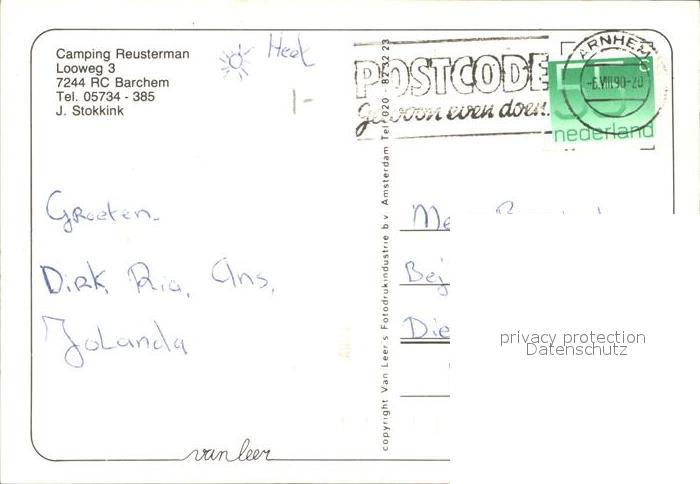 Camping Reusterman
Looweg 3
7244 RC Barchem
Tel. 05734 - 385
J. Stokkink
Heek
1-
POSTCODE
gewoon even doen.
ARNHEM
-6.VIII.90-20
55
nederland
Groeten.
Dirk, Ria, Ans,
Jolanda
copyright Van Leer's Fotodrukindustrie b.v. Amsterdam Tel. 020 - 82 32 23
Me
Bej
Die
privacy protection
Datenschutz
van leer